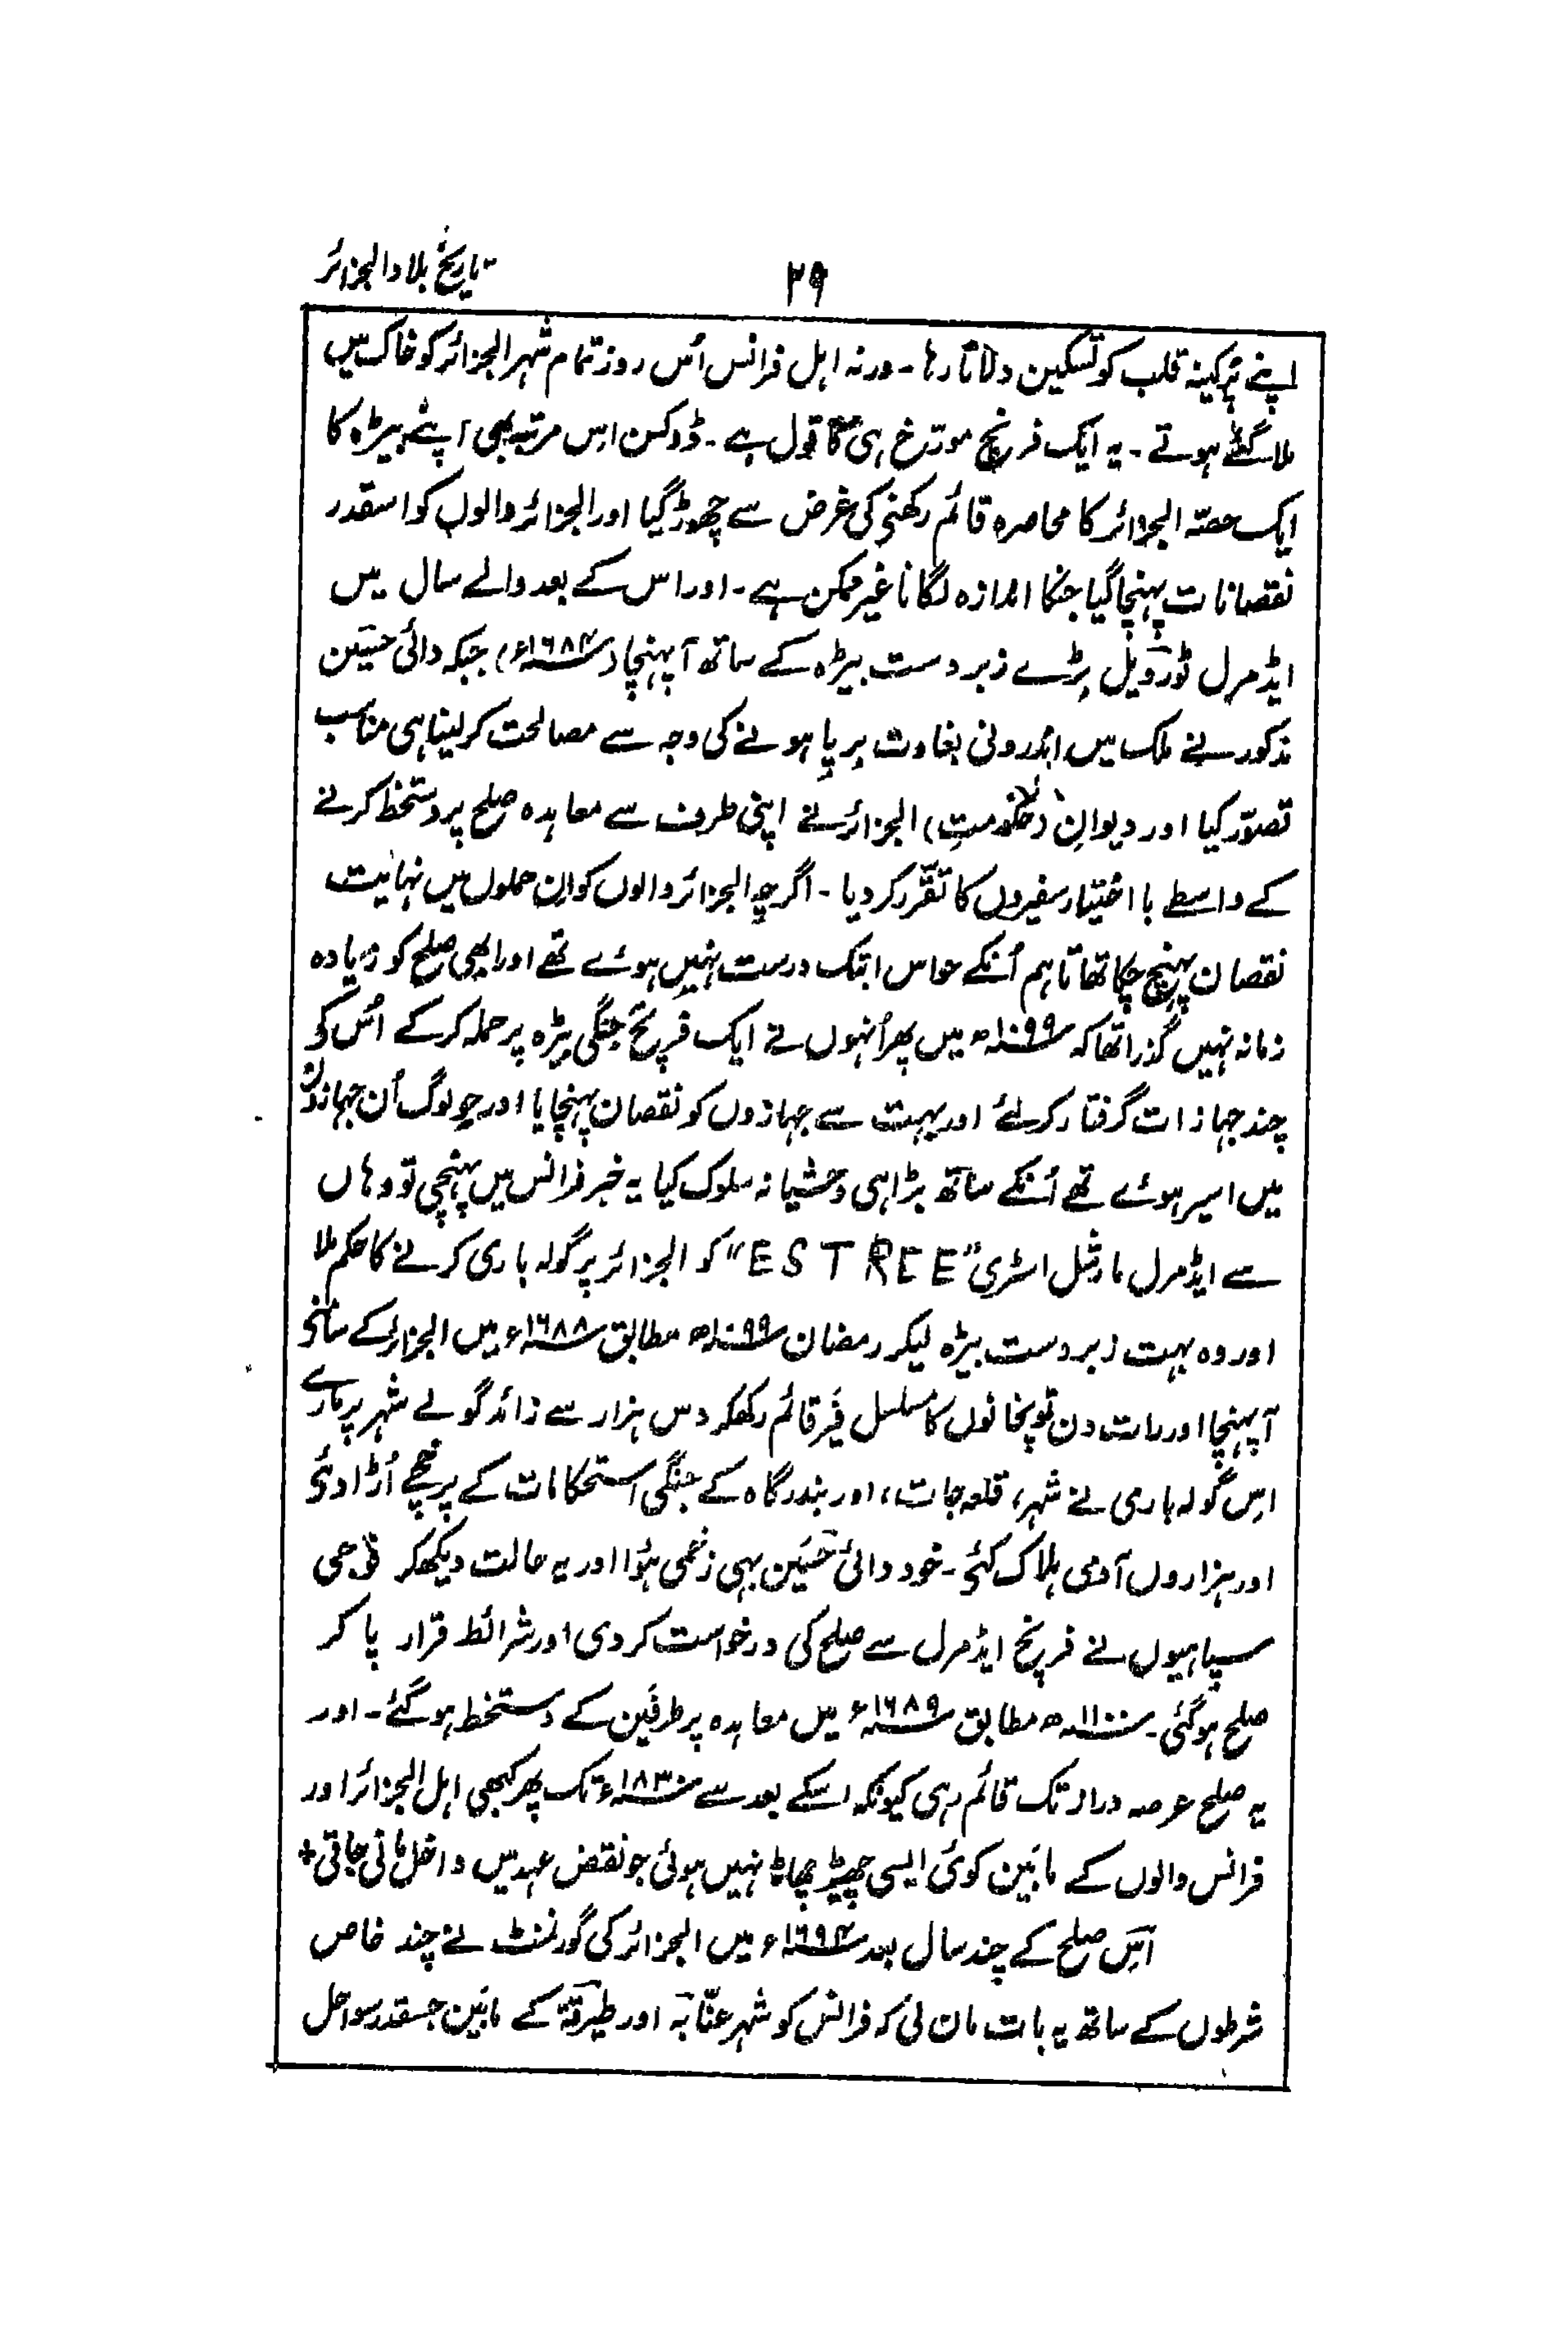 تاریخ بلاد الجزائر
۲۹
اپنے پُرکینہ قلب کو تسکین دلاتا رہا۔ ورنہ اہل فرانس اُس روز تمام شہر الجزائر کو خاک میں
ملا گئے ہوتے۔ یہ ایک فرنچ مورّخ ہی کا قول ہے۔ ڈوکسن اس مرتبہ بھی اپنے بیڑہ کا
ایک حصّہ الجزائر کا محاصرہ قائم رکھنے کی غرض سے چھوڑ گیا اور الجزائر والوں کو اسقدر
نقصانات پہنچا گیا جنکا اندازہ لگانا غیر ممکن ہے۔ اور اس کے بعد والے سال میں
ایڈمرل ٹورویل بڑے زبردست بیڑہ کے ساتھ آ پہنچا (۱۶۸۴ء) جبکہ دائی حسین
مذکور نے ملک میں اندرونی بغاوت برپا ہونے کی وجہ سے مصالحت کر لینا ہی مناسب
تصوّر کیا اور دیوانِ (حکومتِ) الجزائر نے اپنی طرف سے معاہدہ صلح پر دستخط کرنے
کے واسطے با اختیار سفیروں کا تقرّر کر دیا۔ اگرچہ الجزائر والوں کو ان حملوں میں نہایت
نقصان پہنچ چکا تھا تا ہم اُنکے حواس ابتک درست نہیں ہوئے تھے اور ابھی صلح کو زیادہ
زمانہ نہیں گذرا تھا کہ ۱۰۹۹ھ میں پھر اُنہوں نے ایک فرنچ جنگی بیڑہ پر حملہ کرکے اُس کو
چند جہازات گرفتار کرلئے اور بہت سے جہازوں کو نقصان پہنچایا اور جو لوگ اُن جہازوں
میں اسیر ہوئے تھے اُنکے ساتھ بڑا ہی وحشیانہ سلوک کیا یہ خبر فرانس میں پہنچی تو وہاں
سے ایڈمرل مارشل اسٹری "ESTREE" کو الجزائر پر گولہ باری کرنے کا حکم ملا
اور وہ بہت زبردست بیڑہ لیکر رمضان ۱۰۹۹ھ مطابق ۱۶۸۸ء میں الجزائر کے سامنے
آ پہنچا اور رات دن توپخانوں کا مسلسل فَیر قائم رکھکر دس ہزار سے زائد گولے شہر پر مارے
اِس گولہ باری نے شہر، قلعہ جات، اور بندرگاہ کے جنگی استحکامات کے پرخچے اُڑا دئے
اور ہزاروں آدمی ہلاک کئے۔ خود دائی حسین بہی زخمی ہؤا اور یہ حالت دیکھکر فوجی
سپاہیوں نے فرنچ ایڈمرل سے صلح کی درخواست کردی اور شرائط قرار پا کر
صلح ہوگئی۔ ۱۱۰۰ھ مطابق ۱۶۸۹ء میں معاہدہ پر طرفین کے دستخط ہوگئے۔ اور
یہ صلح عرصہ دراز تک قائم رہی کیونکہ اسکے بعد سے ۱۸۳۰ء تک پھر کبھی اہل الجزائر اور
فرانس والوں کے مابین کوئی ایسی چھیڑ چھاڑ نہیں ہوئی جو نقض عہد میں داخل مانی جاتی +
اُس صلح کے چند سال بعد ۱۶۹۴ء میں الجزائر کی گورنمنٹ نے چند خاص
شرطوں کے ساتھ یہ بات مان لی کہ فرانس کو شہر عنّابہ اور طبرقہ کے مابین جسقدر سواحل